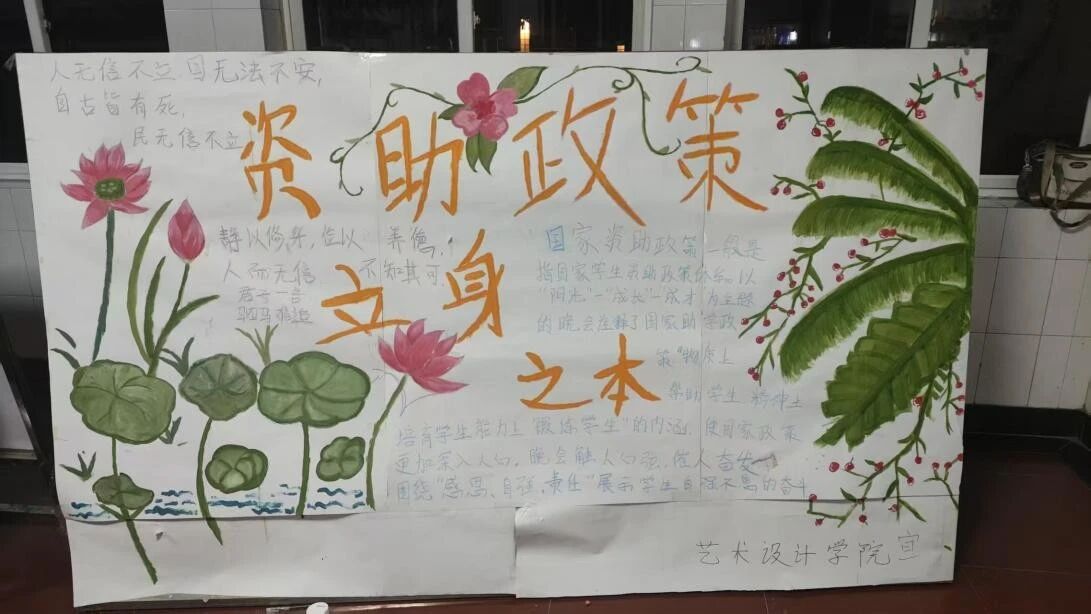 人无信不立,国无法不安,
自古皆有死,
民无信不立
资助政策
静以修身,俭以养德,
人而无信 不知其可
君子一言
驷马难追
立身
之本
国家资助政策一般是
指国家学生资助政策体系,以
"阳光"—"成长"—"成才"为主题
的晚会在释了国家助学政
策"物质上
帮助学生 精神上
培育学生能力上"锻炼学生"的内涵,使国家政策
更加深入人心,晚会触人心弦,催人奋发
围绕"感恩、自强、责任"展示学生自强不息的奋斗
艺术设计学院宣